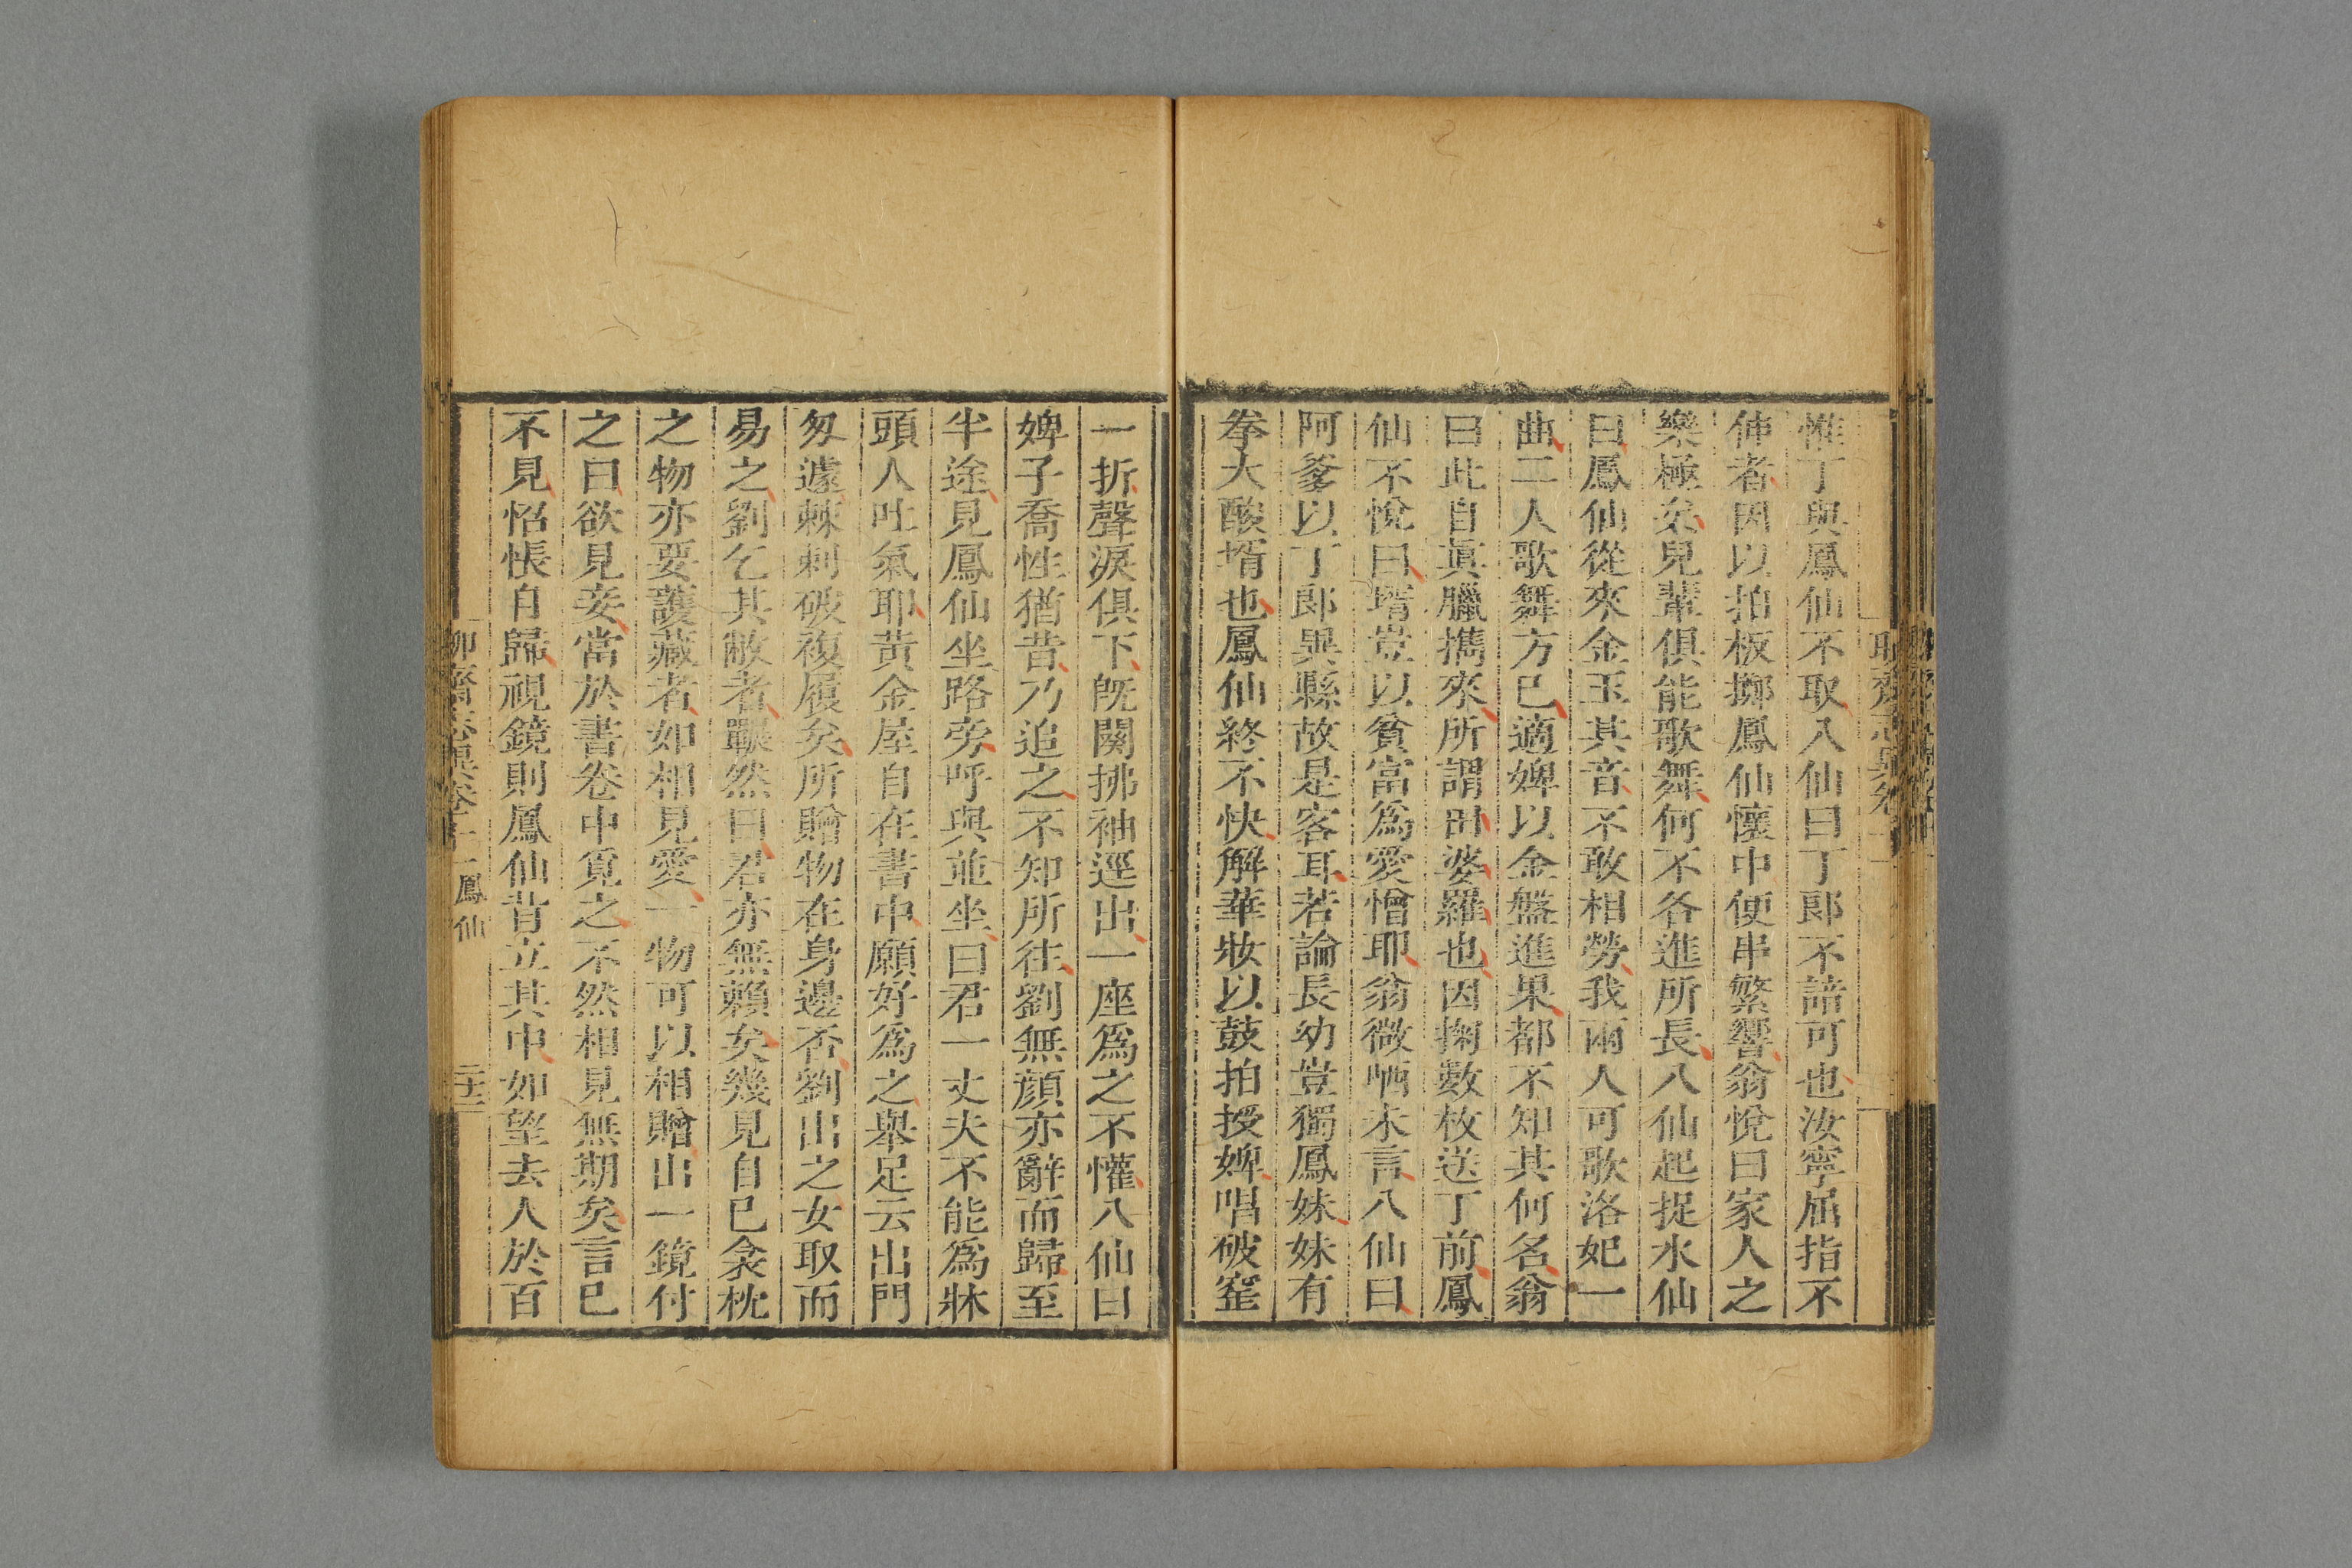 惟丁與鳳仙不取八仙曰丁郎不諳可也汝寧屈指不
伸者因以拍板擲鳳仙懷中便串繁響翁悅曰家人之
樂極矣兒輩俱能歌舞何不各進所長八仙起捉水仙
曰鳳仙從來金玉其音不敢相勞我兩人可歌洛妃一
曲二人歌舞方已適婢以金盤進果都不知其何名翁
曰此自眞臘攜來所謂田婆羅也因掬數枚送丁前鳳
仙不悅曰壻豈以貧富為愛憎耶翁微哂未言八仙曰
阿爹以丁郎異縣故是客耳若論長幼豈獨鳳妹妹有
拳大酸壻也鳳仙終不快解華妝以鼓拍授婢唱破窰
一折聲淚俱下既闋拂袖逕出一座為之不懽八仙曰
婢子喬性猶昔乃追之不知所往劉無顏亦辭而歸至
半途見鳳仙坐路旁呼與並坐曰君一丈夫不能為牀
頭人吐氣耶黃金屋自在書中願好為之舉足云出門
匆遽棘刺破複履矣所贈物在身邊否劉出之女取而
易之劉乞其敝者囅然曰君亦無賴矣幾見自己衾枕
之物亦要護藏者如相見愛一物可以相贈出一鏡付
之曰欲見妾當於書卷中覓之不然相見無期矣言已
不見怊悵自歸視鏡則鳳仙背立其中如望去人於百
鳳仙